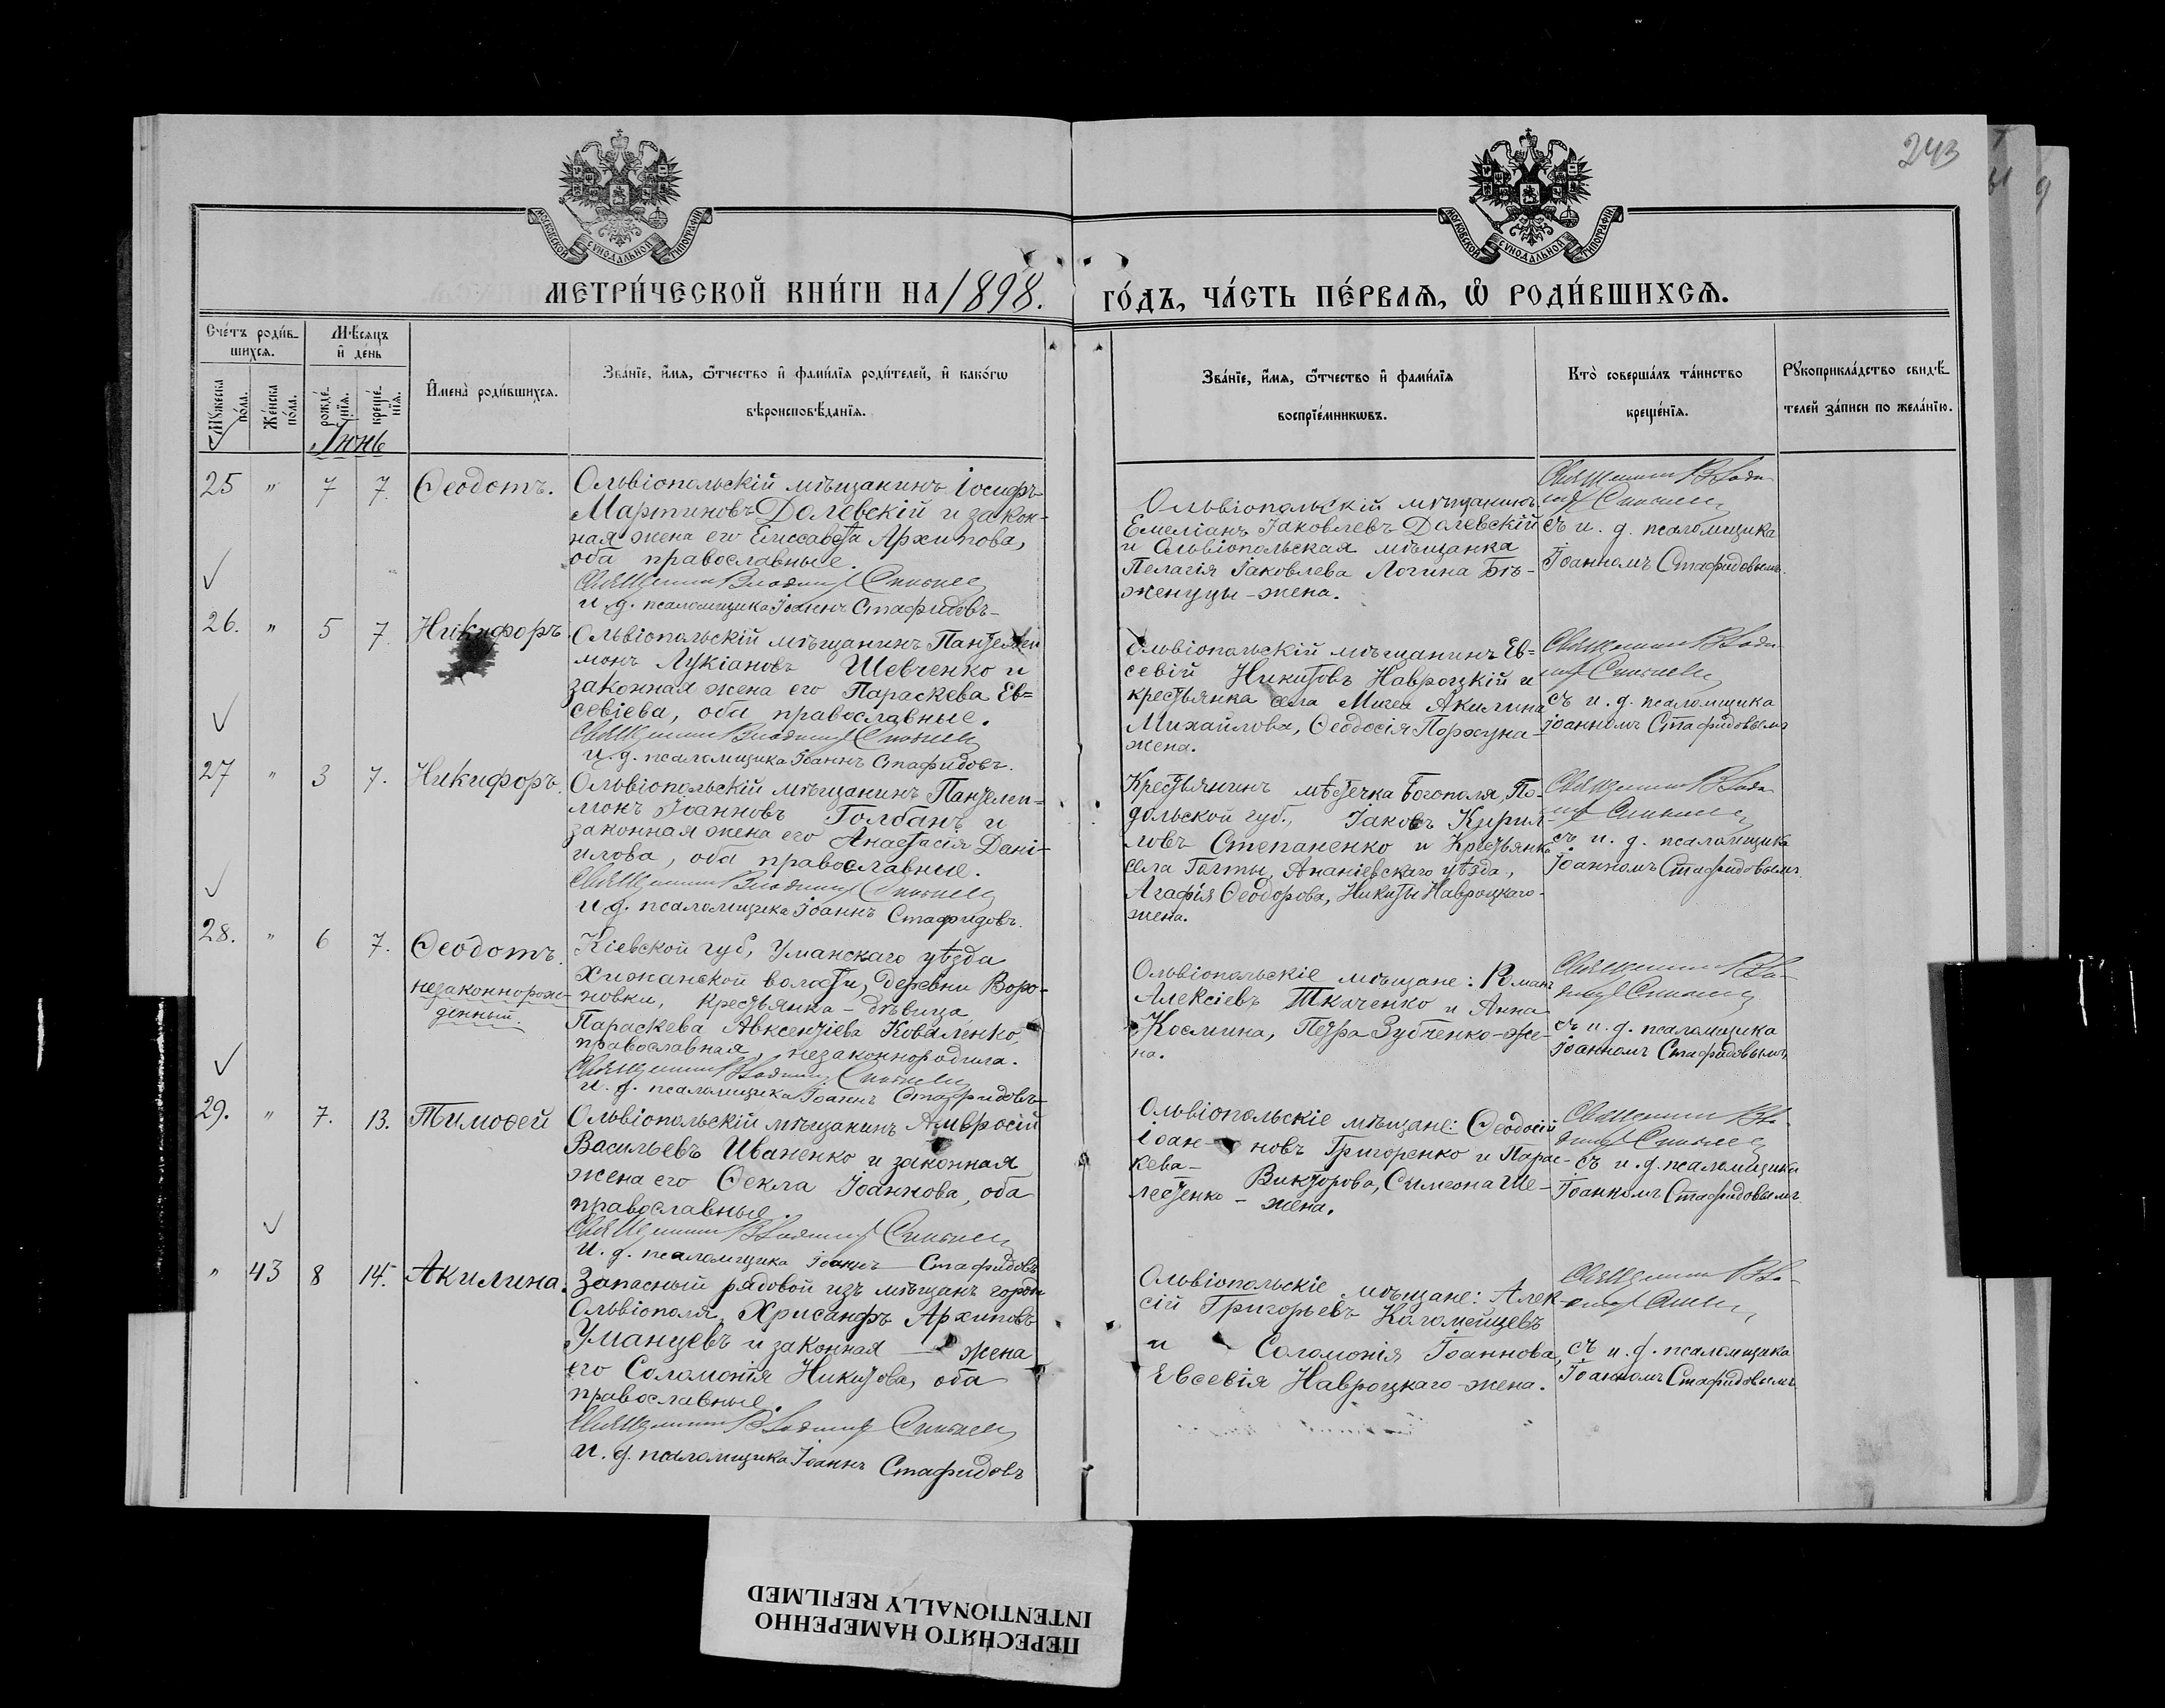 243
МОСКОВСКОЙ СѴНОДАЛЬНОЙ ТИПОГРАФІИ
МОСКОВСКОЙ СѴНОДАЛЬНОЙ ТИПОГРАФІИ
МЕТРИ́ЧЕСКОЙ КНИ́ГИ НА 1898.
ГО́ДЪ, ЧА́СТЬ ПЕ́РВАѦ, Ѡ҆ РОДИ́ВШИХСѦ.
Сче́тъ роди́в-
шихсѧ.
Мѣ́сѧцъ
и҆ де́нь
Мꙋ́жеска
по́ла.
Же́нска
по́ла.
рожде́-
нїѧ.
креще́-
нїѧ.
И҆мена̀ роди́вшихсѧ.
Зва́нїе, и҆́мѧ, ѻ҆́тчество и҆ фами́лїѧ роди́телей, и҆ како́гѡ
вѣроисповѣ́данїѧ.
Зва́нїе, и҆́мѧ, ѻ҆́тчество и҆ фами́лїѧ
воспрїе́мникѡвъ.
Кто̀ соверша́лъ та́инство
креще́нїѧ.
Рꙋкоприкла́дство свидѣ́-
телей за́писи по жела́нїю.
Іюнь
25 " 7 7. Ѳеодотъ.
Ольвіопольскій мѣщанинъ Іосифъ
Мартиновъ Долевскій и закон-
ная жена его Елисавета Архипова,
оба православные.
Священникъ Владимиръ
и. д. псаломщика Іоаннъ Стафидовъ
Ольвіопольскій мѣщанинъ
Емеліанъ Іаковлевъ Долевскій
и Ольвіопольская мѣщанка
Пелагія Іаковлева Логина Бѣ-
женуцы - жена.
Священникъ Влади-
миръ
съ и. д. псаломщика
Іоанномъ Стафидовымъ.
26. " 5 7. Никифоръ.
Ольвіопольскій мѣщанинъ Пантелеи
монъ Лукіановъ Шевченко и
законная жена его Параскева Ев=
севіева, оба православные.
Священникъ Владимиръ
и. д. псаломщика Іоаннъ Стафидовъ.
Ольвіопольскій мѣщанинъ Ев=
севій Никитовъ Навроцкій и
крестьянка села Мигеи Акилина
Михайлова, Ѳеодосія Порхуна-
жена.
Священникъ Влади-
миръ
съ и. д. псаломщика
Іоанномъ Стафидовымъ
27 " 3 7. Никифоръ.
Ольвіопольскій мѣщанинъ Пантелеи=
монъ Іоанновъ Голбанъ и
законная жена его Анастасія Дані-
илова, оба православные.
Священникъ Владимиръ
и. д. псаломщика Іоаннъ Стафидовъ.
Крестьянинъ мѣстечка Богополя, По-
дольской губ., Іаковъ Кирил-
ловъ Степаненко и Крестьянка
села Голты, Ананіевскаго уѣзда,
Агафія Ѳеодорова, Никиты Навроцкаго-
жена.
Священникъ Влади-
миръ
съ и. д. псаломщика
Іоанномъ Стафидовымъ.
28. " 6 7. Ѳеодотъ.
незаконнорож-
денный.
Кіевской губ, Уманскаго уѣзда
Хижанской волости, деревни Воро-
новки, крестьянка - дѣвица
Параскева Авксентіева Коваленко,
православная, незаконнородила.
Священникъ Владимиръ
и. д. псаломщика Іоаннъ Стафидовъ
Ольвіопольскіе мѣщане: Романъ
Алексіевъ Ткаченко и Анна
Космина, Петра Зубченко-же-
на.
Священникъ Вла-
димиръ
съ и. д. псаломщика
Іоанномъ Стафидовымъ
29. " 7. 13. Тимоѳей
Ольвіопольскій мѣщанинъ Амвросій
Васильевъ Иваненко и законная
жена его Ѳекла Іоаннова, оба
православные.
Священникъ Владимиръ
И. д. псаломщика Іоаннъ Стафидовъ
Ольвіопольскіе мѣщане: Ѳеодосій
Іоан- новъ Григоренко и Парас-
кева- Викторова, Симеона Ше-
лестенко - жена.
Священникъ Вла-
димиръ
съ и. д. псаломщика
Іоанномъ Стафидовымъ
" 43 8 14. Акилина.
Запасный рядовой изъ мѣщанъ города
Ольвіополя, Хрисанфъ Архиповъ
Уманцевъ и законная — жена
его Соломонія Никитова, оба
православные.
Священникъ Владимиръ
и. д. псаломщика Іоаннъ Стафидовъ
Ольвіопольскіе мѣщане: Алек-
сій Григорьевъ Коломейцевъ
и Соломонія Іоаннова,
Евсевія Навроцкаго-жена.
Священникъ Вла-
димиръ
съ и. д. псаломщика
Іоанномъ Стафидовымъ
ПЕРЕСНЯТО НАМЕРЕННО
INTENTIONALLY REFILMED